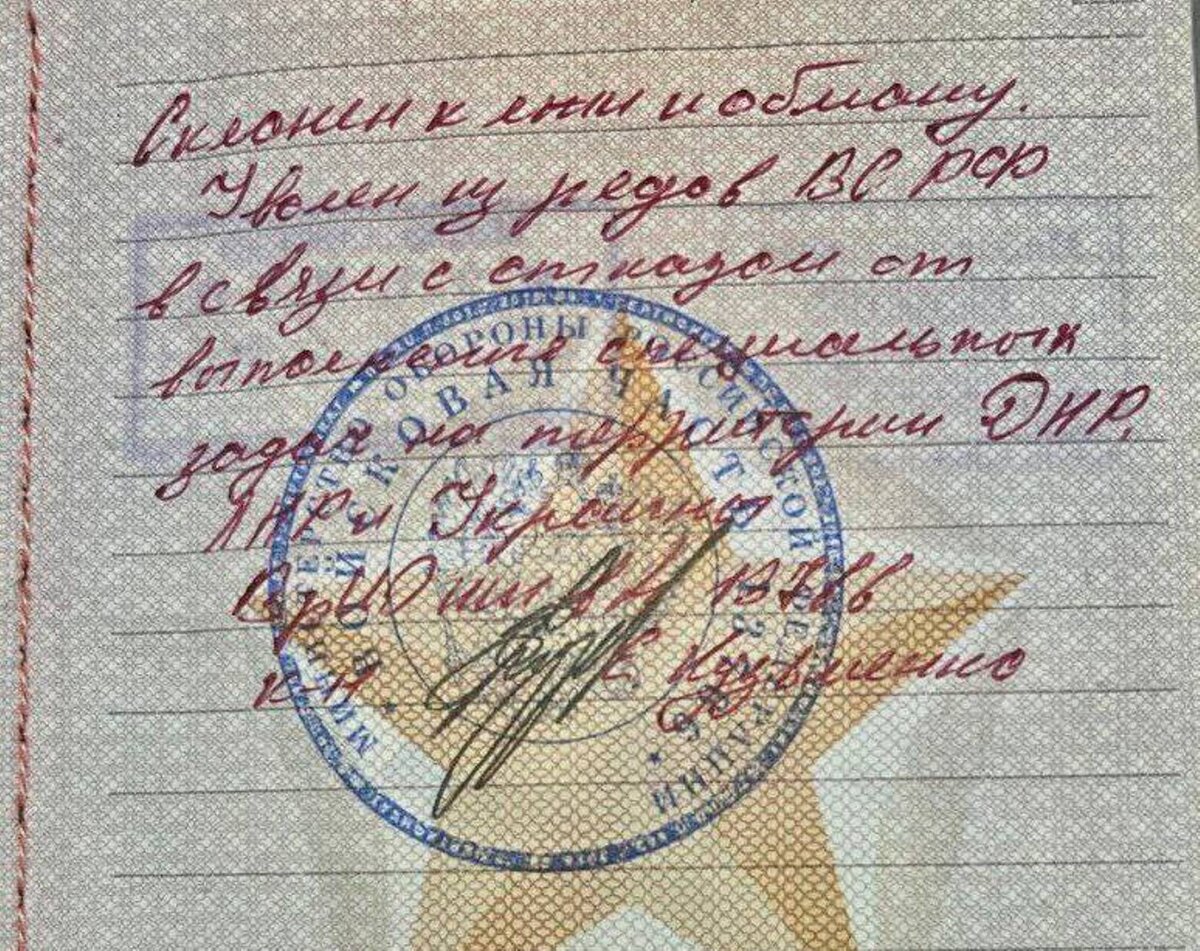 Склонен к лжи и обману.
Уволен из рядов ВС РФ
в связи с отказом от
выполнения специальных
задач на территории ДНР,
ЛНР и Украины
К. Кузьменко
МИНИСТЕРСТВО ОБОРОНЫ РОССИЙСКОЙ ФЕДЕРАЦИИ
ВОЙСКОВАЯ ЧАСТЬ